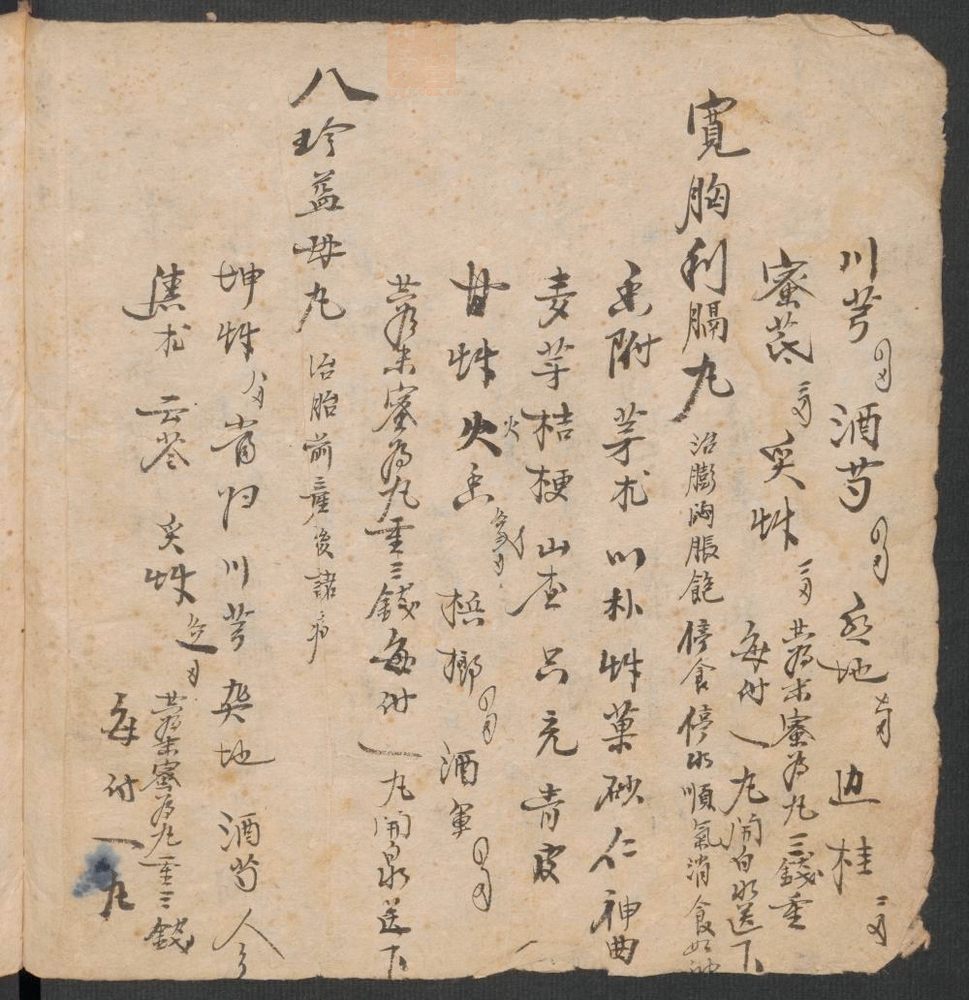 川芎 酒芍 地 边桂
蜜芪 炙草 共为末蜜为丸三錢重
每付一丸開白水送下
寬胸利膈丸 治膨悶脹飽停食停水順氣消食如神
香附 芽朮 川朴 草菓 砂仁 神曲
麦芽 桔梗 山查 只壳 青皮
甘草 火香 梹榔 酒軍
共为末蜜为丸重三錢每付一丸開水送下
八珍益母丸 治胎前產後諸
坤草 当归 川芎 地 酒芍 人
焦朮 云苓 炙草 共为末蜜为丸重三錢
每付一丸